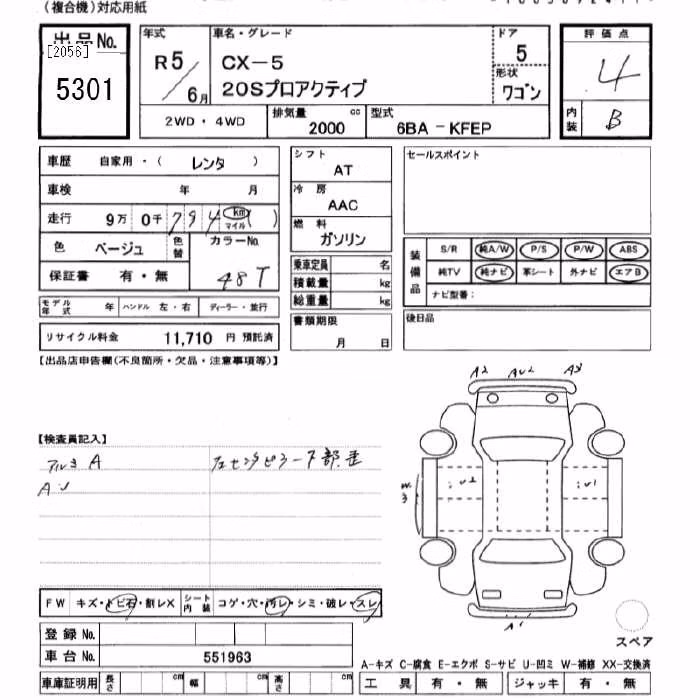 (複合機)対応用紙
出品No.
[2056]
5301
年式
R5/6月
車名・グレード
CX-5
20Sプロアクティブ
ドア
5
形状
ワゴン
2WD・4WD
排気量
2000
cc
型式
6BA-KFEP
評価点
4
内装
B
車歴 自家用・(レンタ)
車検 年 月
走行 9万 0千 794 km マイル ( )
色 ベージュ 色替 カラーNo. 48T
保証書 有・無
モデル年式 年 ハンドル 左・右 ディーラー・並行
リサイクル料金 11,710 円 預託済
シフト
AT
冷房
AAC
燃料
ガソリン
乗車定員 名
積載量 kg
総重量 kg
書類期限
月 日
セールスポイント
装備品
S/R 純A/W P/S P/W ABS
純TV 純ナビ 革シート 外ナビ エアB
ナビ型番:
後日品
【出品店申告欄(不良箇所・欠品・注意事項等)】
【検査員記入】
アルミ A
フェ センタピラー下部歪
A2 AU2
A1
FW キズ・トビ石・割レX シート内装 コゲ・穴・汚レ・シミ・破レ・スレ
登録No.
車台No. 551963
車庫証明用 長さ cm 幅 cm 高さ cm
スペア
A-キズ C-腐食 E-エクボ S-サビ U-凹ミ W-補修 XX-交換済
工具 有・無 ジャッキ 有・無